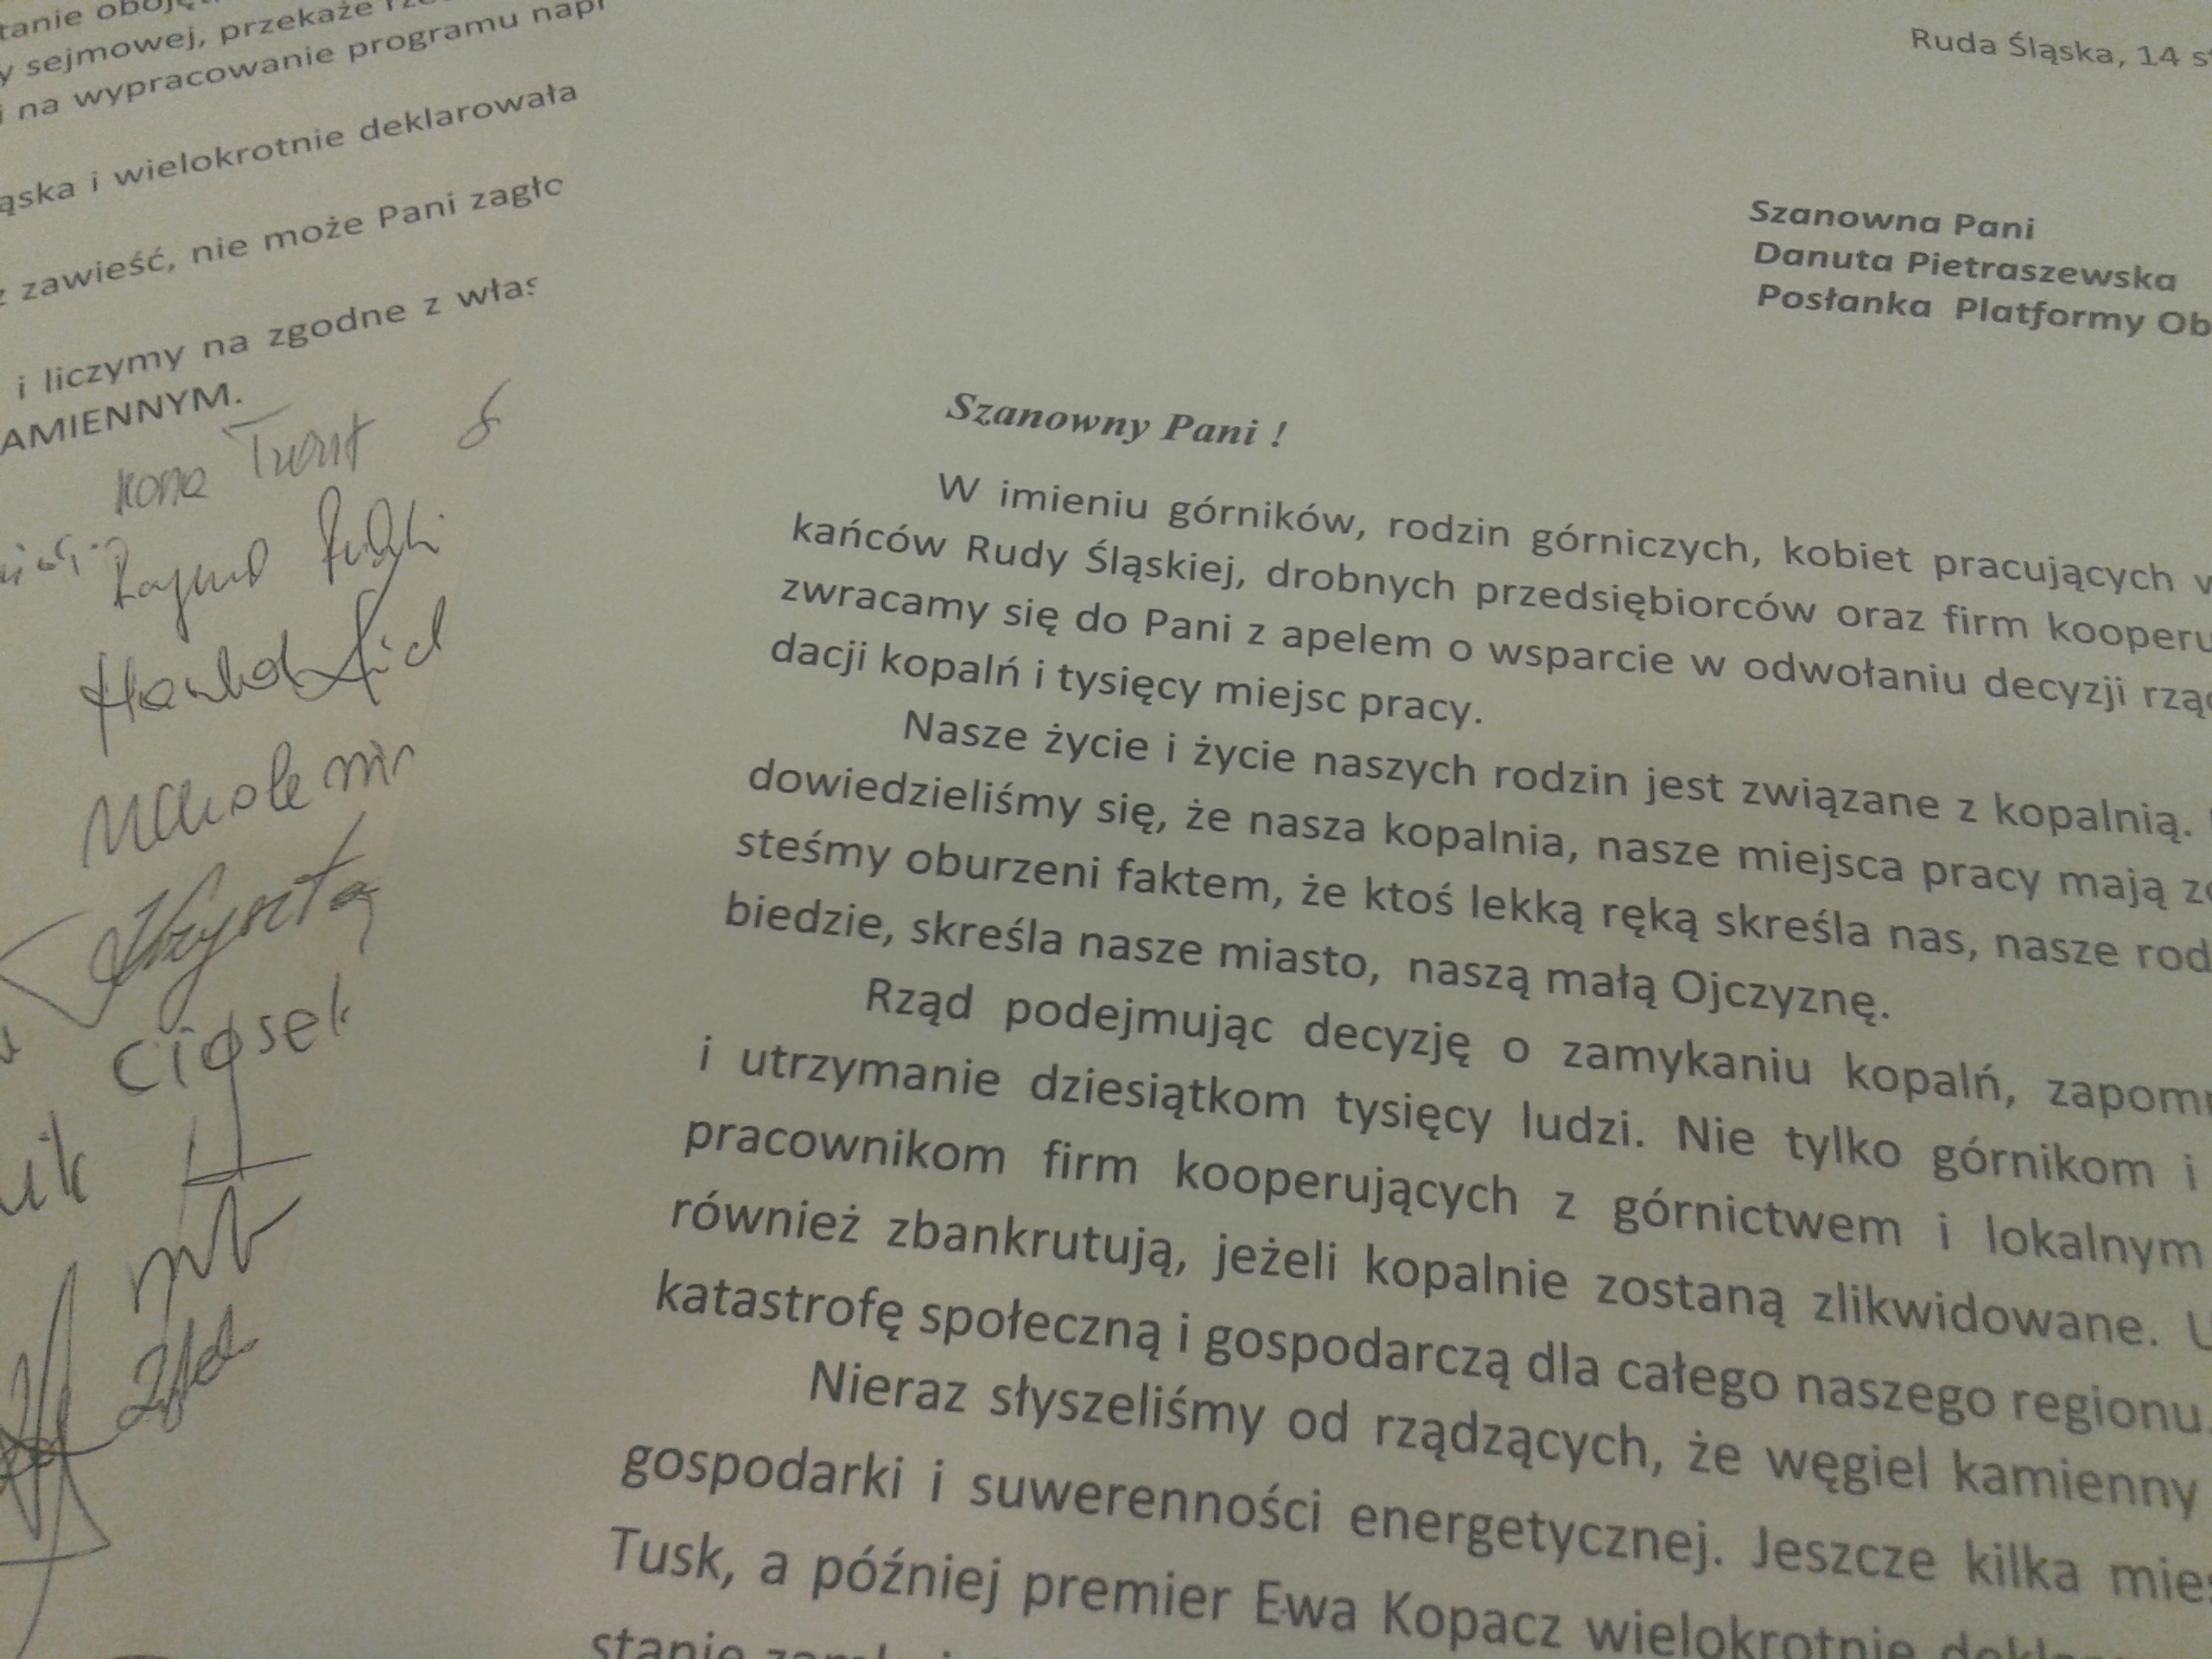 tanie
y sejmowej, przekaże
i na wypracowanie programu
i wielokrotnie deklarowała
zawieść, nie może Pani
i liczymy na zgodne z
AMIENNYM.
Ciosek
Ruda Śląska, 14
Szanowna Pani
Danuta Pietraszewska
Posłanka Platformy Ob
Szanowny Pani !
W imieniu górników, rodzin górniczych, kobiet pracujących
kańców Rudy Śląskiej, drobnych przedsiębiorców oraz firm kooperu
zwracamy się do Pani z apelem o wsparcie w odwołaniu decyzji
dacji kopalń i tysięcy miejsc pracy.
Nasze życie i życie naszych rodzin jest związane z kopalnią.
dowiedzieliśmy się, że nasza kopalnia, nasze miejsca pracy mają
steśmy oburzeni faktem, że ktoś lekką ręką skreśla nas, nasze rod
biedzie, skreśla nasze miasto, naszą małą Ojczyznę.
Rząd podejmując decyzję o zamykaniu kopalń,
i utrzymanie dziesiątkom tysięcy ludzi. Nie tylko górnikom i
pracownikom firm kooperujących z górnictwem i lokalnym
również zbankrutują, jeżeli kopalnie zostaną zlikwidowane.
katastrofę społeczną i gospodarczą dla całego naszego regionu.
Nieraz słyszeliśmy od rządzących, że węgiel kamienny
gospodarki i suwerenności energetycznej. Jeszcze kilka
Tusk, a później premier Ewa Kopacz wielokrotnie